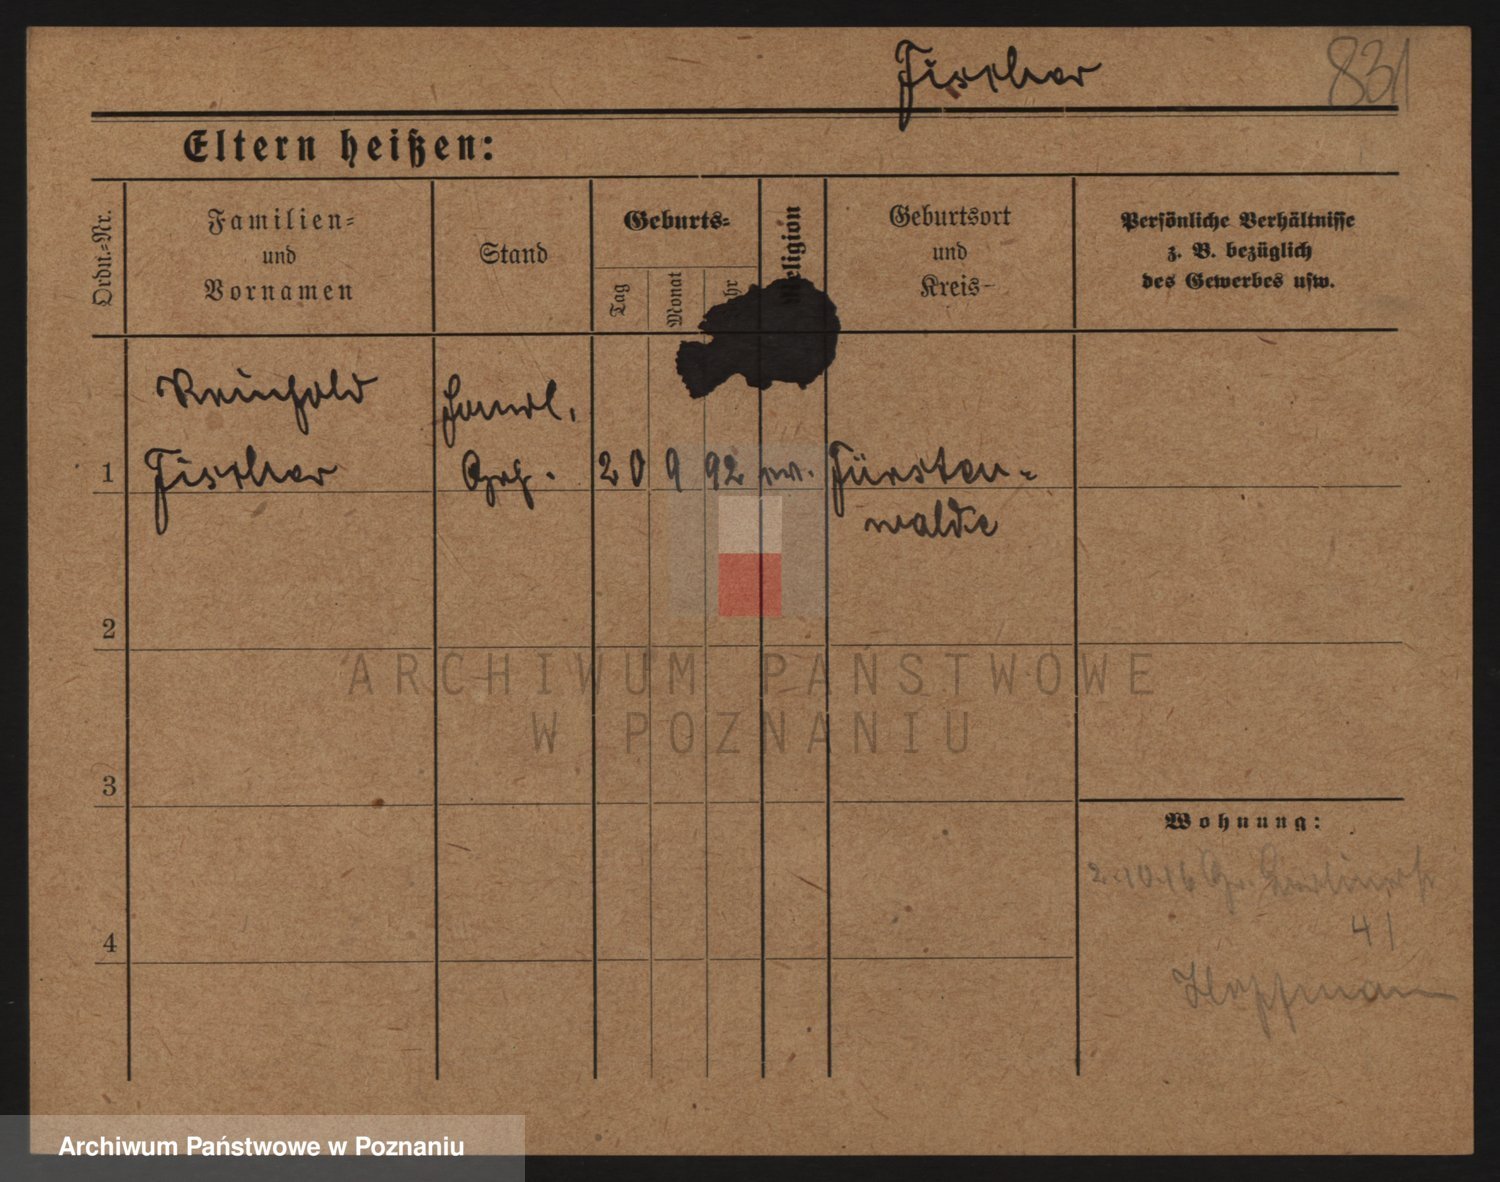 Fischer
831
Eltern heißen:
Ordn.-Nr.
Familien-
und
Vornamen
Stand
Geburts-
Tag
Monat
Religion
Geburtsort
und
Kreis
Persönliche Verhältnisse
z. B. bezüglich
des Gewerbes usw.
Reinhold
Handl.
1 Fischer Geh. 20 9 92 ev. Fürsten-
walde
2
3
4
Wohnung:
2.10.16 Gr. Berlinerstr
41
Hoffmann
ARCHIWUM PAŃSTWOWE
W POZNANIU
Archiwum Państwowe w Poznaniu